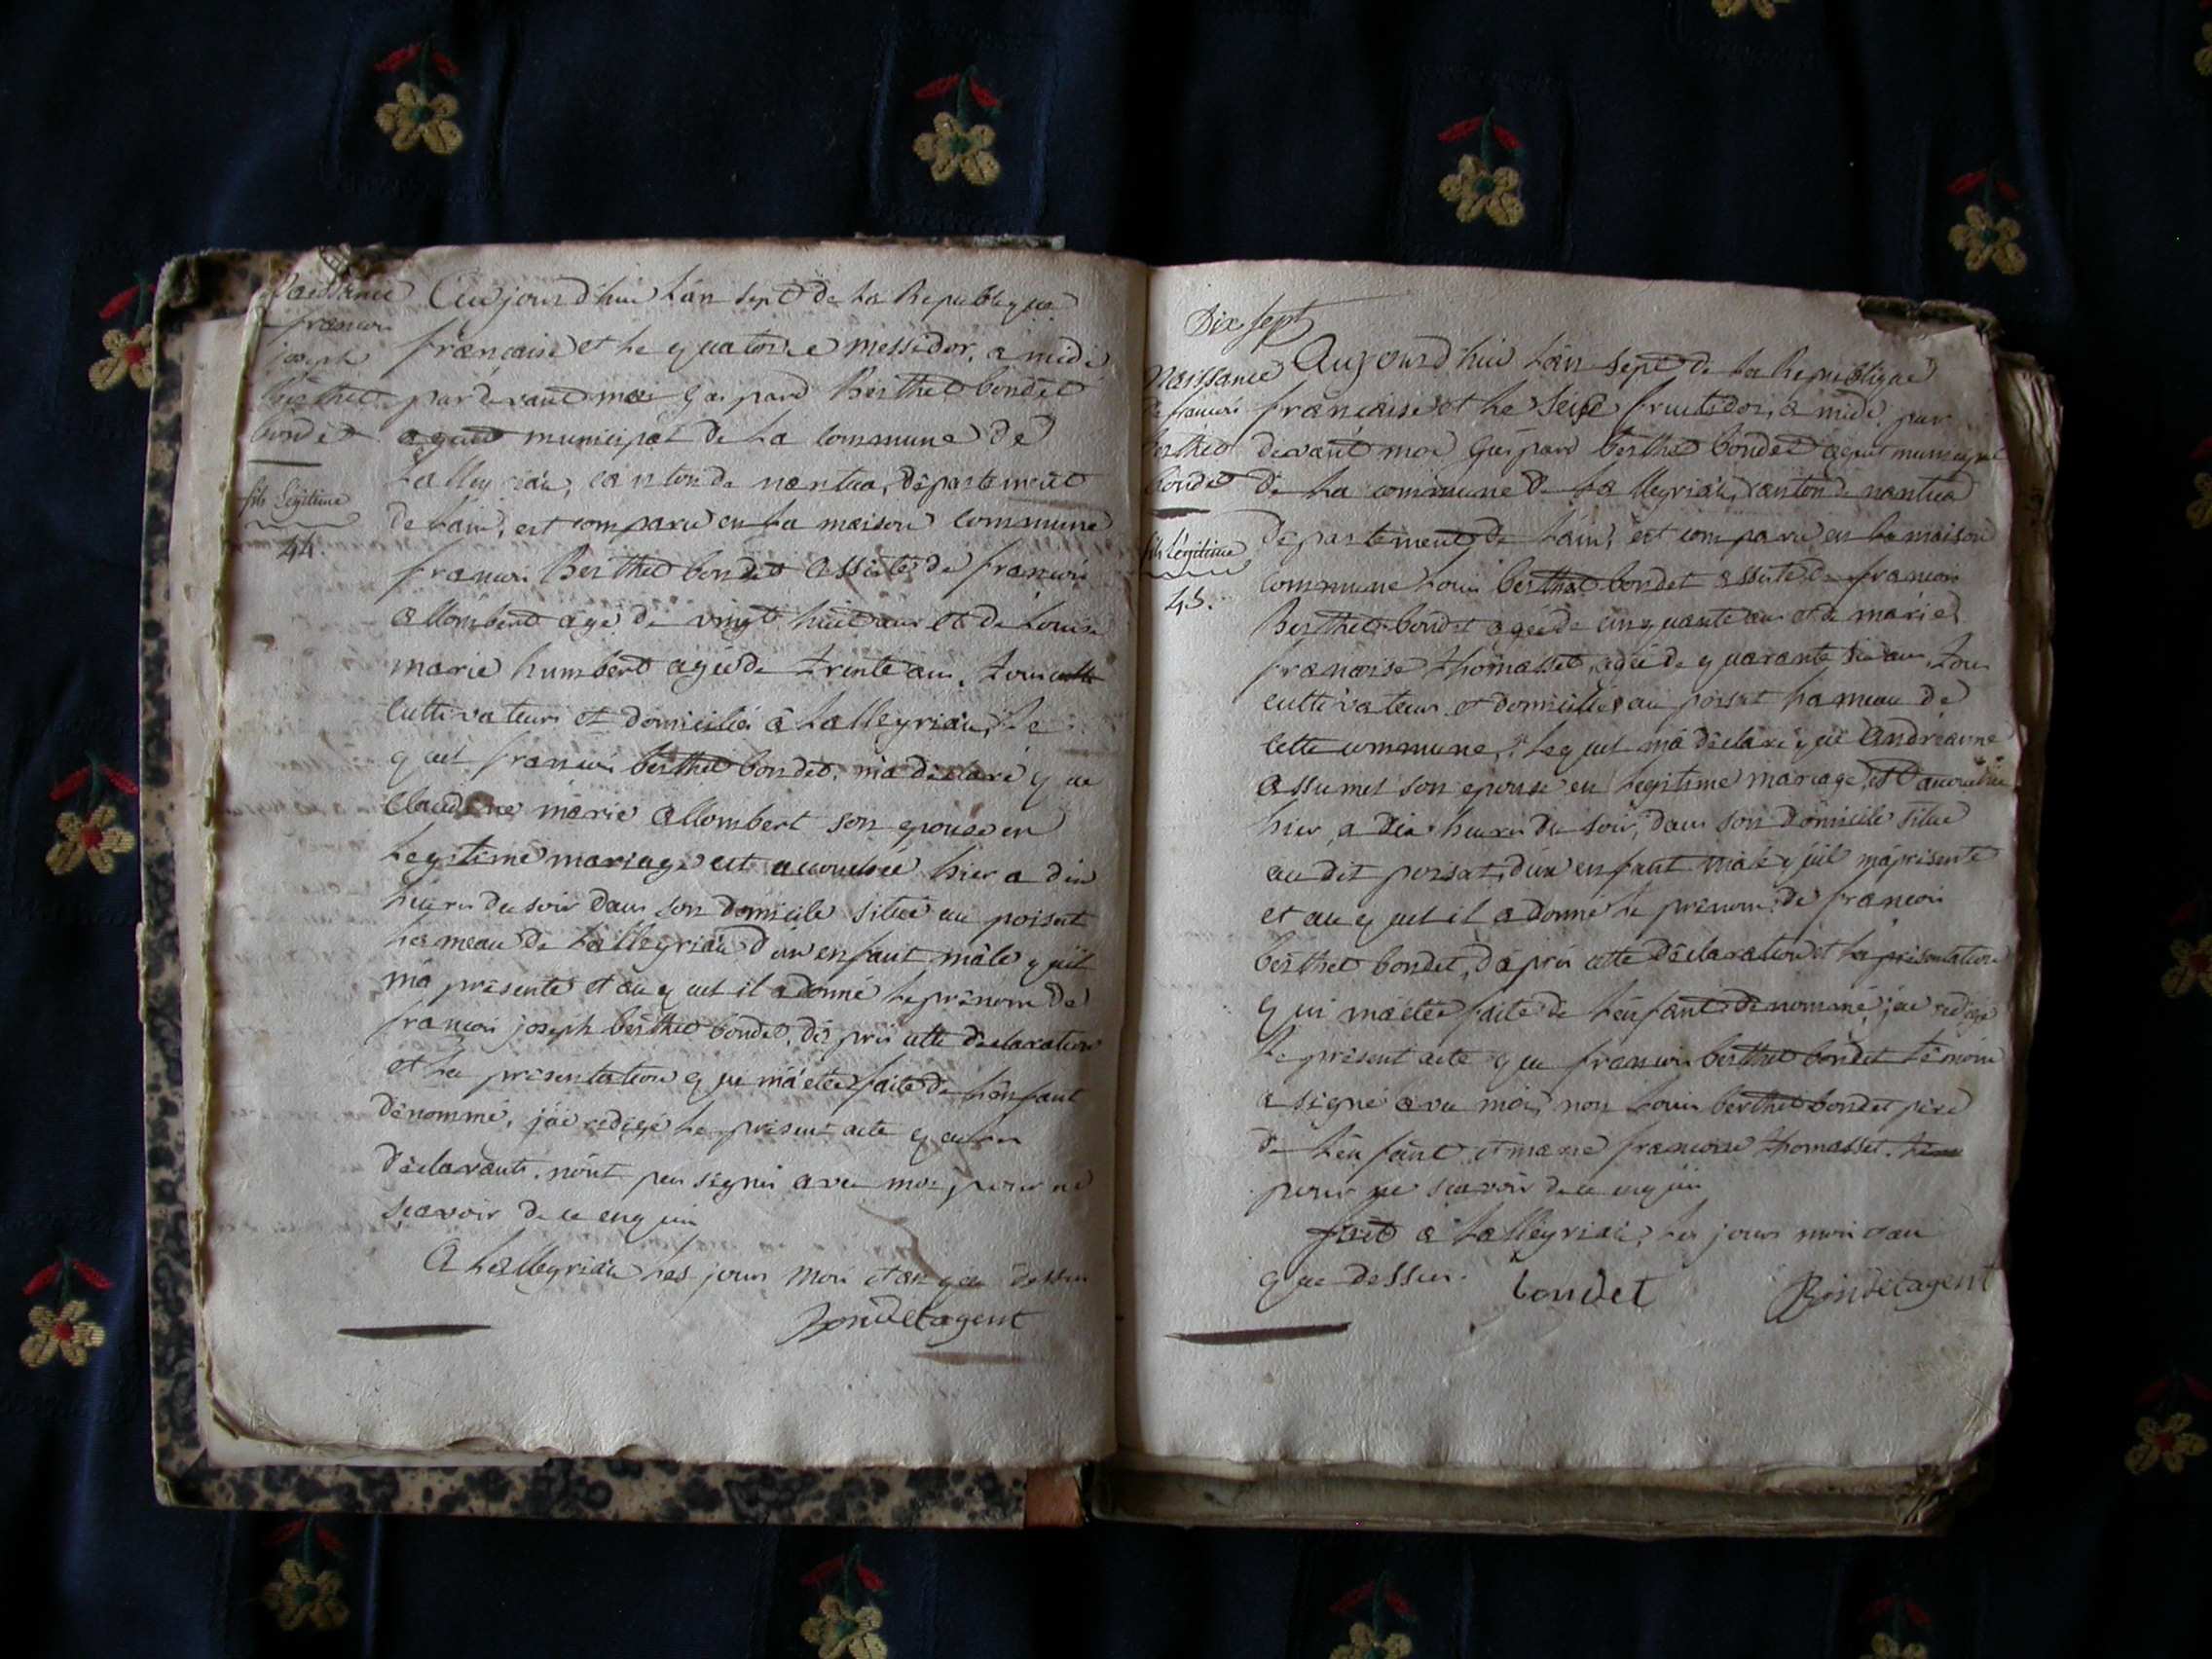 Naissance
francois
joseph
berthet
bondet
fils légitime
44.
Aujourdhui l'an sept de la Republique
francaise et le quatorze messidor, a midi
par devant moi Gaspard Berthet bondet
agent municipal de la commune de
Lalleyriat, canton de nantua, département
de l'ain, est comparu en la maison commune
francois Berthet bondet assisté de francois
allombert agé de vingt huit ans et de Louise
marie humbert agée de trente ans, tous
cultivateurs et domiciliés à Lalleyriat, le
quel francois berthet bondet, m'a déclaré que
Claudine marie allombert son epouse en
legitime mariage est accouchée hier a dix
heures du soir dans son domicile situé au poisat
hameau de Lalleyriat d'un enfant mâle qu'il
m'a présenté et auquel il a donné le prénom de
francois joseph berthet bondet, d'après cette déclaration
et la présentation que m'a etée faite de l'enfant
dénommé, j'ai redigé le présent acte que les
déclarants n'ont pas signés avec moi, pour ne
scavoir de ce enquis
A Lalleyriat les jours mois et an que dessus
Bondet agent
Dix sept
Naissance
de francois
berthet
bondet
fils légitime
45.
Aujourd'hui l'an sept de la Republique
francaise et le seize fructidor, a midi, par
devant moi Gaspard berthet bondet agent municipal
de la commune de Lalleyriat, canton de nantua
departement de l'ain, est comparu en la maison
commune Louis berthet bondet assisté de francois
Berthet bondet agé de cinquante ans et de marie
francoise thomasset, agée de quarante six ans, tous
cultivateurs et domiciliés au poisat hameau de
cette commune, lequel m'a déclaré que andréanne
assumet son epouse en legitime mariage, est accouchée
hier, a dix heures du soir, dans son domicile situé
au dit poisat, d'un enfant mâle qu'il m'a présenté
et auquel il a donné le prenom de francois
berthet bondet, d'après cette déclaration et la présentation
qui m'a etée faite de l'enfant dénommé, j'ai redigé
le présent acte que francois berthet bondet témoin
a signé avec moi, non Louis berthet bondet père
de l'enfant, et marie francoise thomasset.
pour ne scavoir de ce enquis
fait a Lalleyriat, les jours mois et an
que dessus.
bondet
Bondet agent